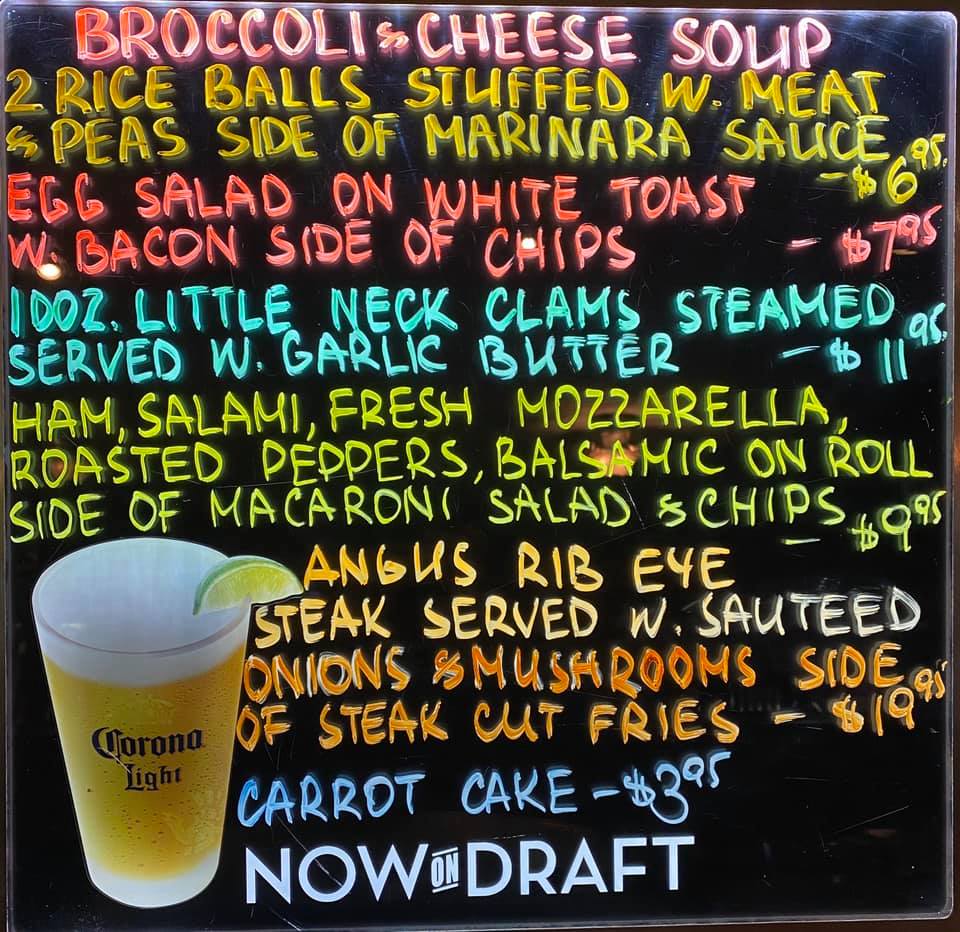 BROCCOLI & CHEESE SOUP
2 RICE BALLS STUFFED W. MEAT
& PEAS SIDE OF MARINARA SAUCE
- $6.95.
EGG SALAD ON WHITE TOAST
W. BACON SIDE OF CHIPS - $7.95
1 DOZ. LITTLE NECK CLAMS STEAMED
SERVED W. GARLIC BUTTER - $11.95.
HAM, SALAMI, FRESH MOZZARELLA,
ROASTED PEPPERS, BALSAMIC ON ROLL
SIDE OF MACARONI SALAD & CHIPS - $9.95
ANGUS RIB EYE
STEAK SERVED W. SAUTEED
ONIONS & MUSHROOMS SIDE
OF STEAK CUT FRIES - $19.95
CARROT CAKE - $3.95
Corona
Light
NOW ON DRAFT